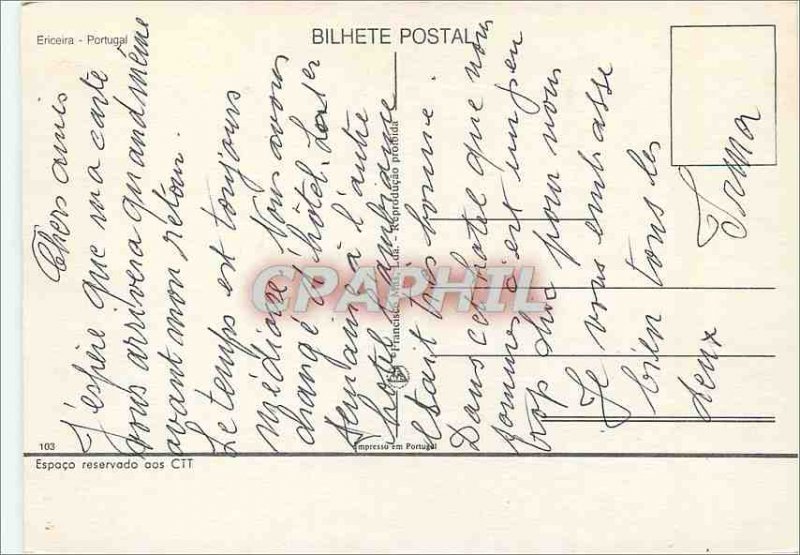 Ericeira - Portugal
BILHETE POSTAL
Chers amis
J'espère que ma carte
vous arrivera quand même
avant mon retour.
Le temps est toujours
médiocre. Nous avons
changé d'hôtel.
semaine à l'autre
hotel l'ambiance
était très bonne.
Dans cet hotel que nous
sommes c'est un peu
trop chic pour nous
Je vous embrasse
bien tous les
deux
Irma
Francisco Más, Lda. - Reprodução proibida
CPAPHIL
103
Impresso em Portugal
Espaço reservado aos CTT